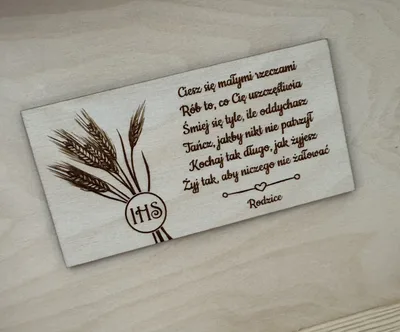 Ciesz się małymi rzeczami
Rób to, co Cię uszczęśliwia
Śmiej się tyle, ile oddychasz
Tańcz, jakby nikt nie patrzył
Kochaj tak długo, jak żyjesz
Żyj tak, aby niczego nie żałować
Rodzice
IHS